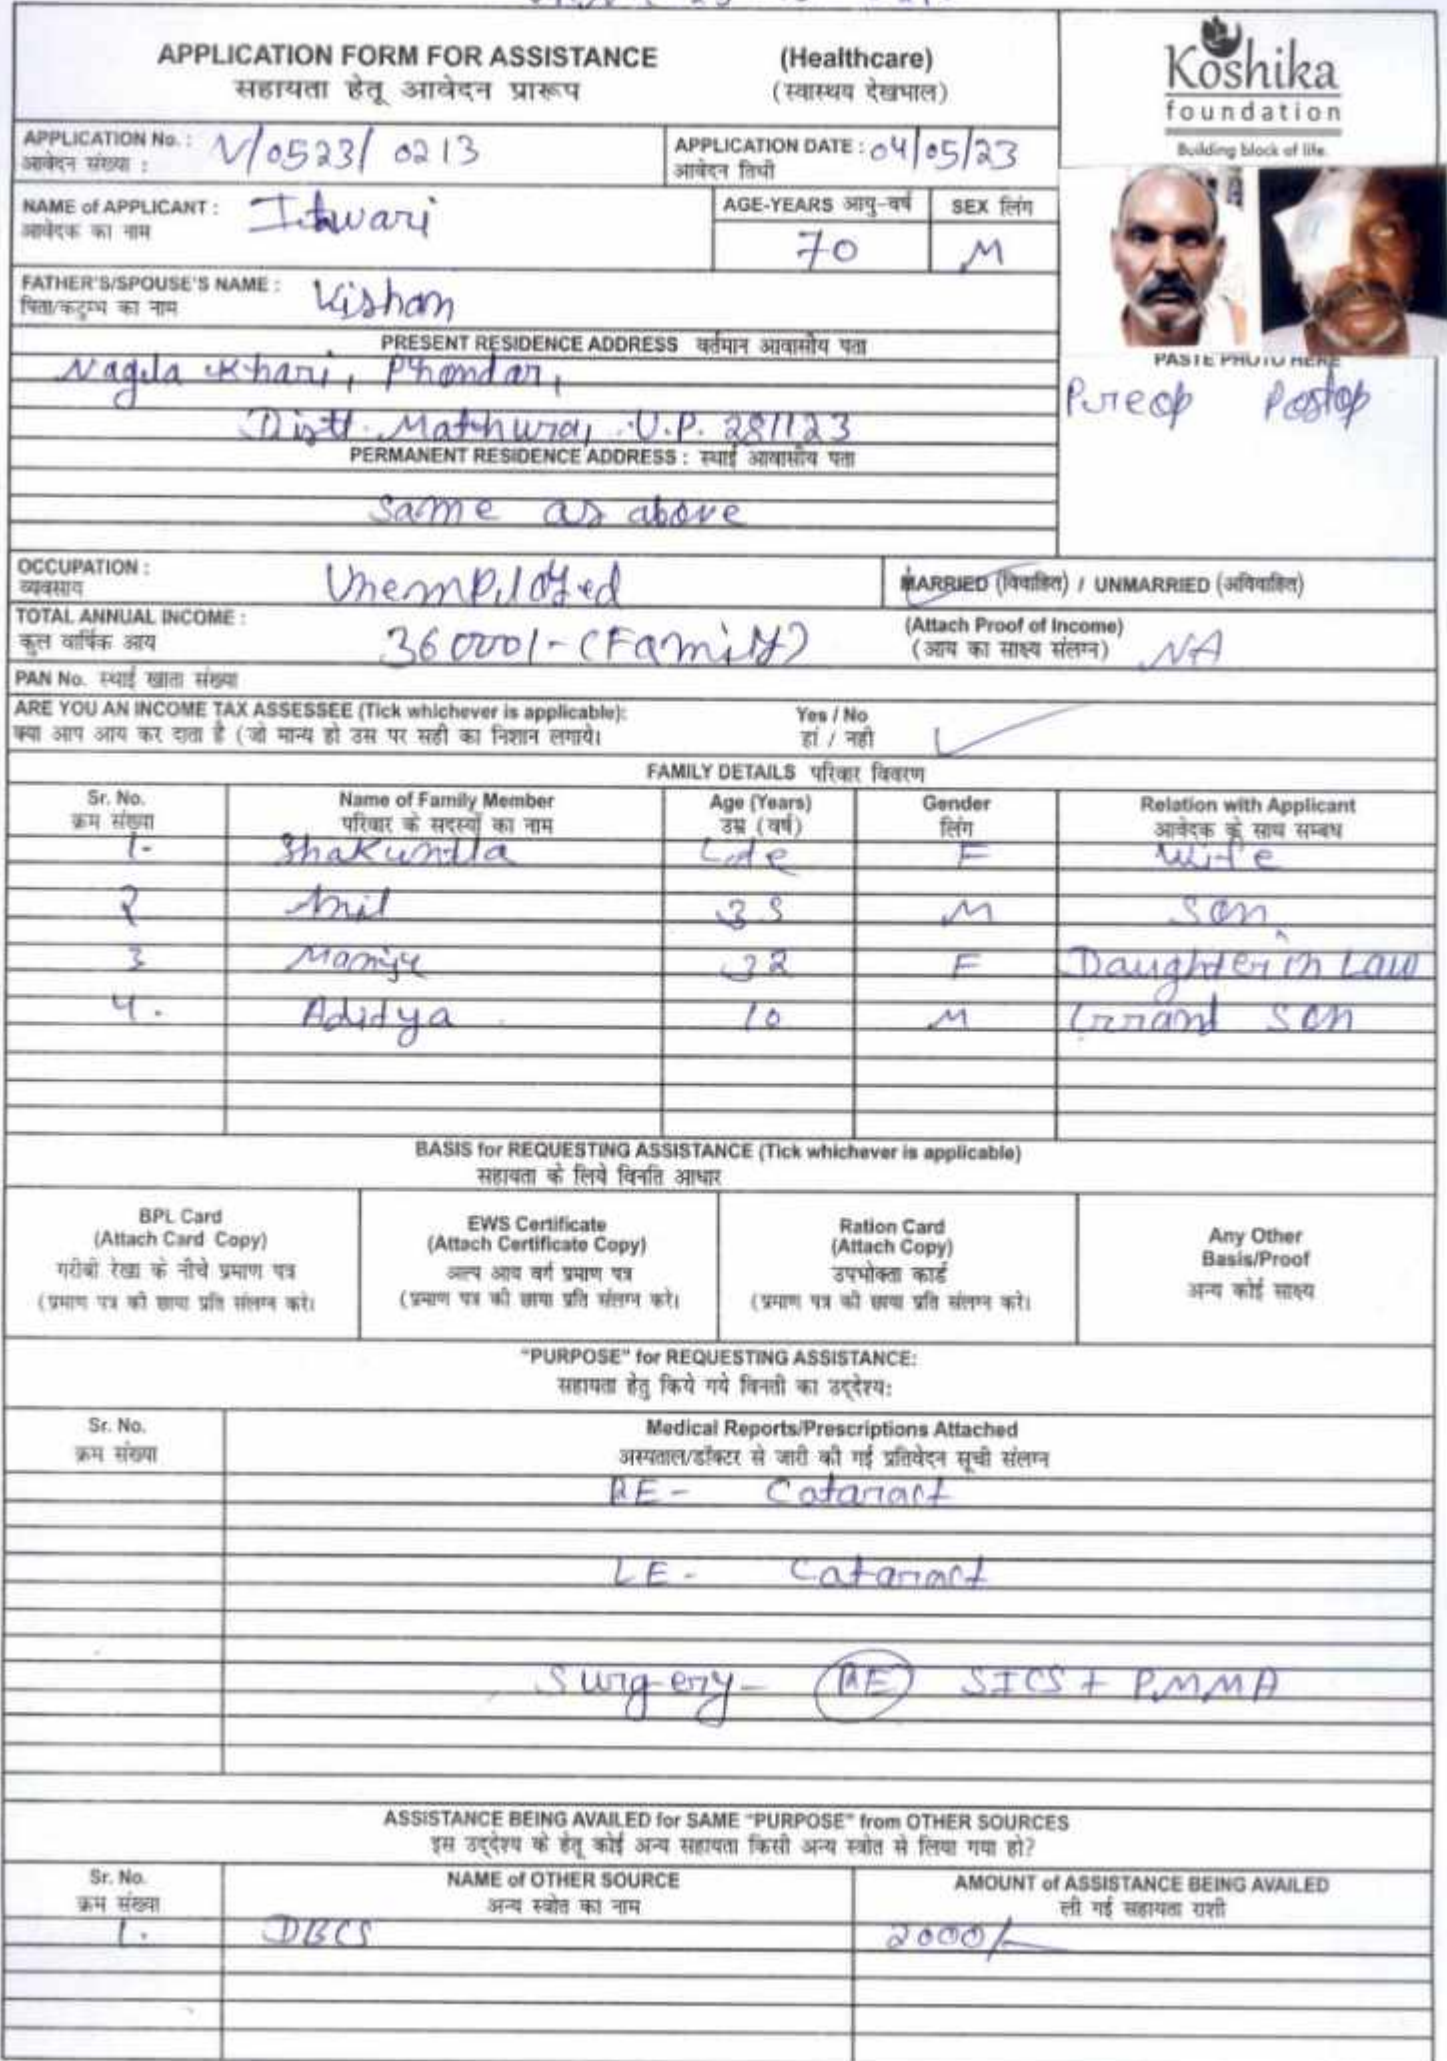 APPLICATION FORM FOR ASSISTANCE (Healthcare)
सहायता हेतू आवेदन प्रारूप (स्वास्थय देखभाल)
Koshika
foundation
Building block of life.
APPLICATION No. : V/0523/0213
आवेदन संख्या :
APPLICATION DATE : 04/05/23
आवेदन तिथी
NAME of APPLICANT : Itwari
आवेदक का नाम
AGE-YEARS आयु-वर्ष SEX लिंग
70 M
FATHER'S/SPOUSE'S NAME : Kishan
पिता/कटुम्भ का नाम
PASTE PHOTO HERE
Preop Postop
PRESENT RESIDENCE ADDRESS वर्तमान आवासीय पता
Nagla Khari, Phondar,
Distt. Mathura, U.P. 281123
PERMANENT RESIDENCE ADDRESS : स्थाई आवासीय पता
Same as above
OCCUPATION : Unemployed
व्यवसाय
MARRIED (विवाहित) / UNMARRIED (अविवाहित)
TOTAL ANNUAL INCOME : 36000/- (Family)
कुल वार्षिक आय
(Attach Proof of Income)
(आय का साक्ष्य संलग्न) NA
PAN No. स्थाई खाता संख्या
ARE YOU AN INCOME TAX ASSESSEE (Tick whichever is applicable): Yes / No
क्या आप आय कर दाता है (जो मान्य हो उस पर सही का निशान लगाये। हां / नही
FAMILY DETAILS परिवार विवरण
Sr. No. Name of Family Member Age (Years) Gender Relation with Applicant
क्रम संख्या परिवार के सदस्यों का नाम उम्र (वर्ष) लिंग आवेदक के साथ सम्बध
1- Shakuntla Late F Wife
2 Anil 35 M Son
3 Manju 32 F Daughter in Law
4. Aditya 10 M Grrand Son
BASIS for REQUESTING ASSISTANCE (Tick whichever is applicable)
सहायता के लिये विनति आधार
BPL Card
(Attach Card Copy)
गरीबी रेखा के नीचे प्रमाण पत्र
(प्रमाण पत्र की छाया प्रति संलग्न करे।
EWS Certificate
(Attach Certificate Copy)
अल्प आय वर्ग प्रमाण पत्र
(प्रमाण पत्र की छाया प्रति संलग्न करे।
Ration Card
(Attach Copy)
उपभोक्ता कार्ड
(प्रमाण पत्र की छाया प्रति संलग्न करे।
Any Other
Basis/Proof
अन्य कोई साक्ष्य
"PURPOSE" for REQUESTING ASSISTANCE:
सहायता हेतु किये गये विनती का उद्देश्य:
Sr. No. Medical Reports/Prescriptions Attached
क्रम संख्या अस्पताल/डॉक्टर से जारी की गई प्रतिवेदन सूची संलग्न
RE- Cataract
LE- Cataract
Surgery- RE SICS + PMMA
ASSISTANCE BEING AVAILED for SAME "PURPOSE" from OTHER SOURCES
इस उद्देश्य के हेतू कोई अन्य सहायता किसी अन्य स्त्रोत से लिया गया हो?
Sr. No. NAME of OTHER SOURCE AMOUNT of ASSISTANCE BEING AVAILED
क्रम संख्या अन्य स्त्रोत का नाम ली गई सहायता राशी
1. DBCS 2000/-